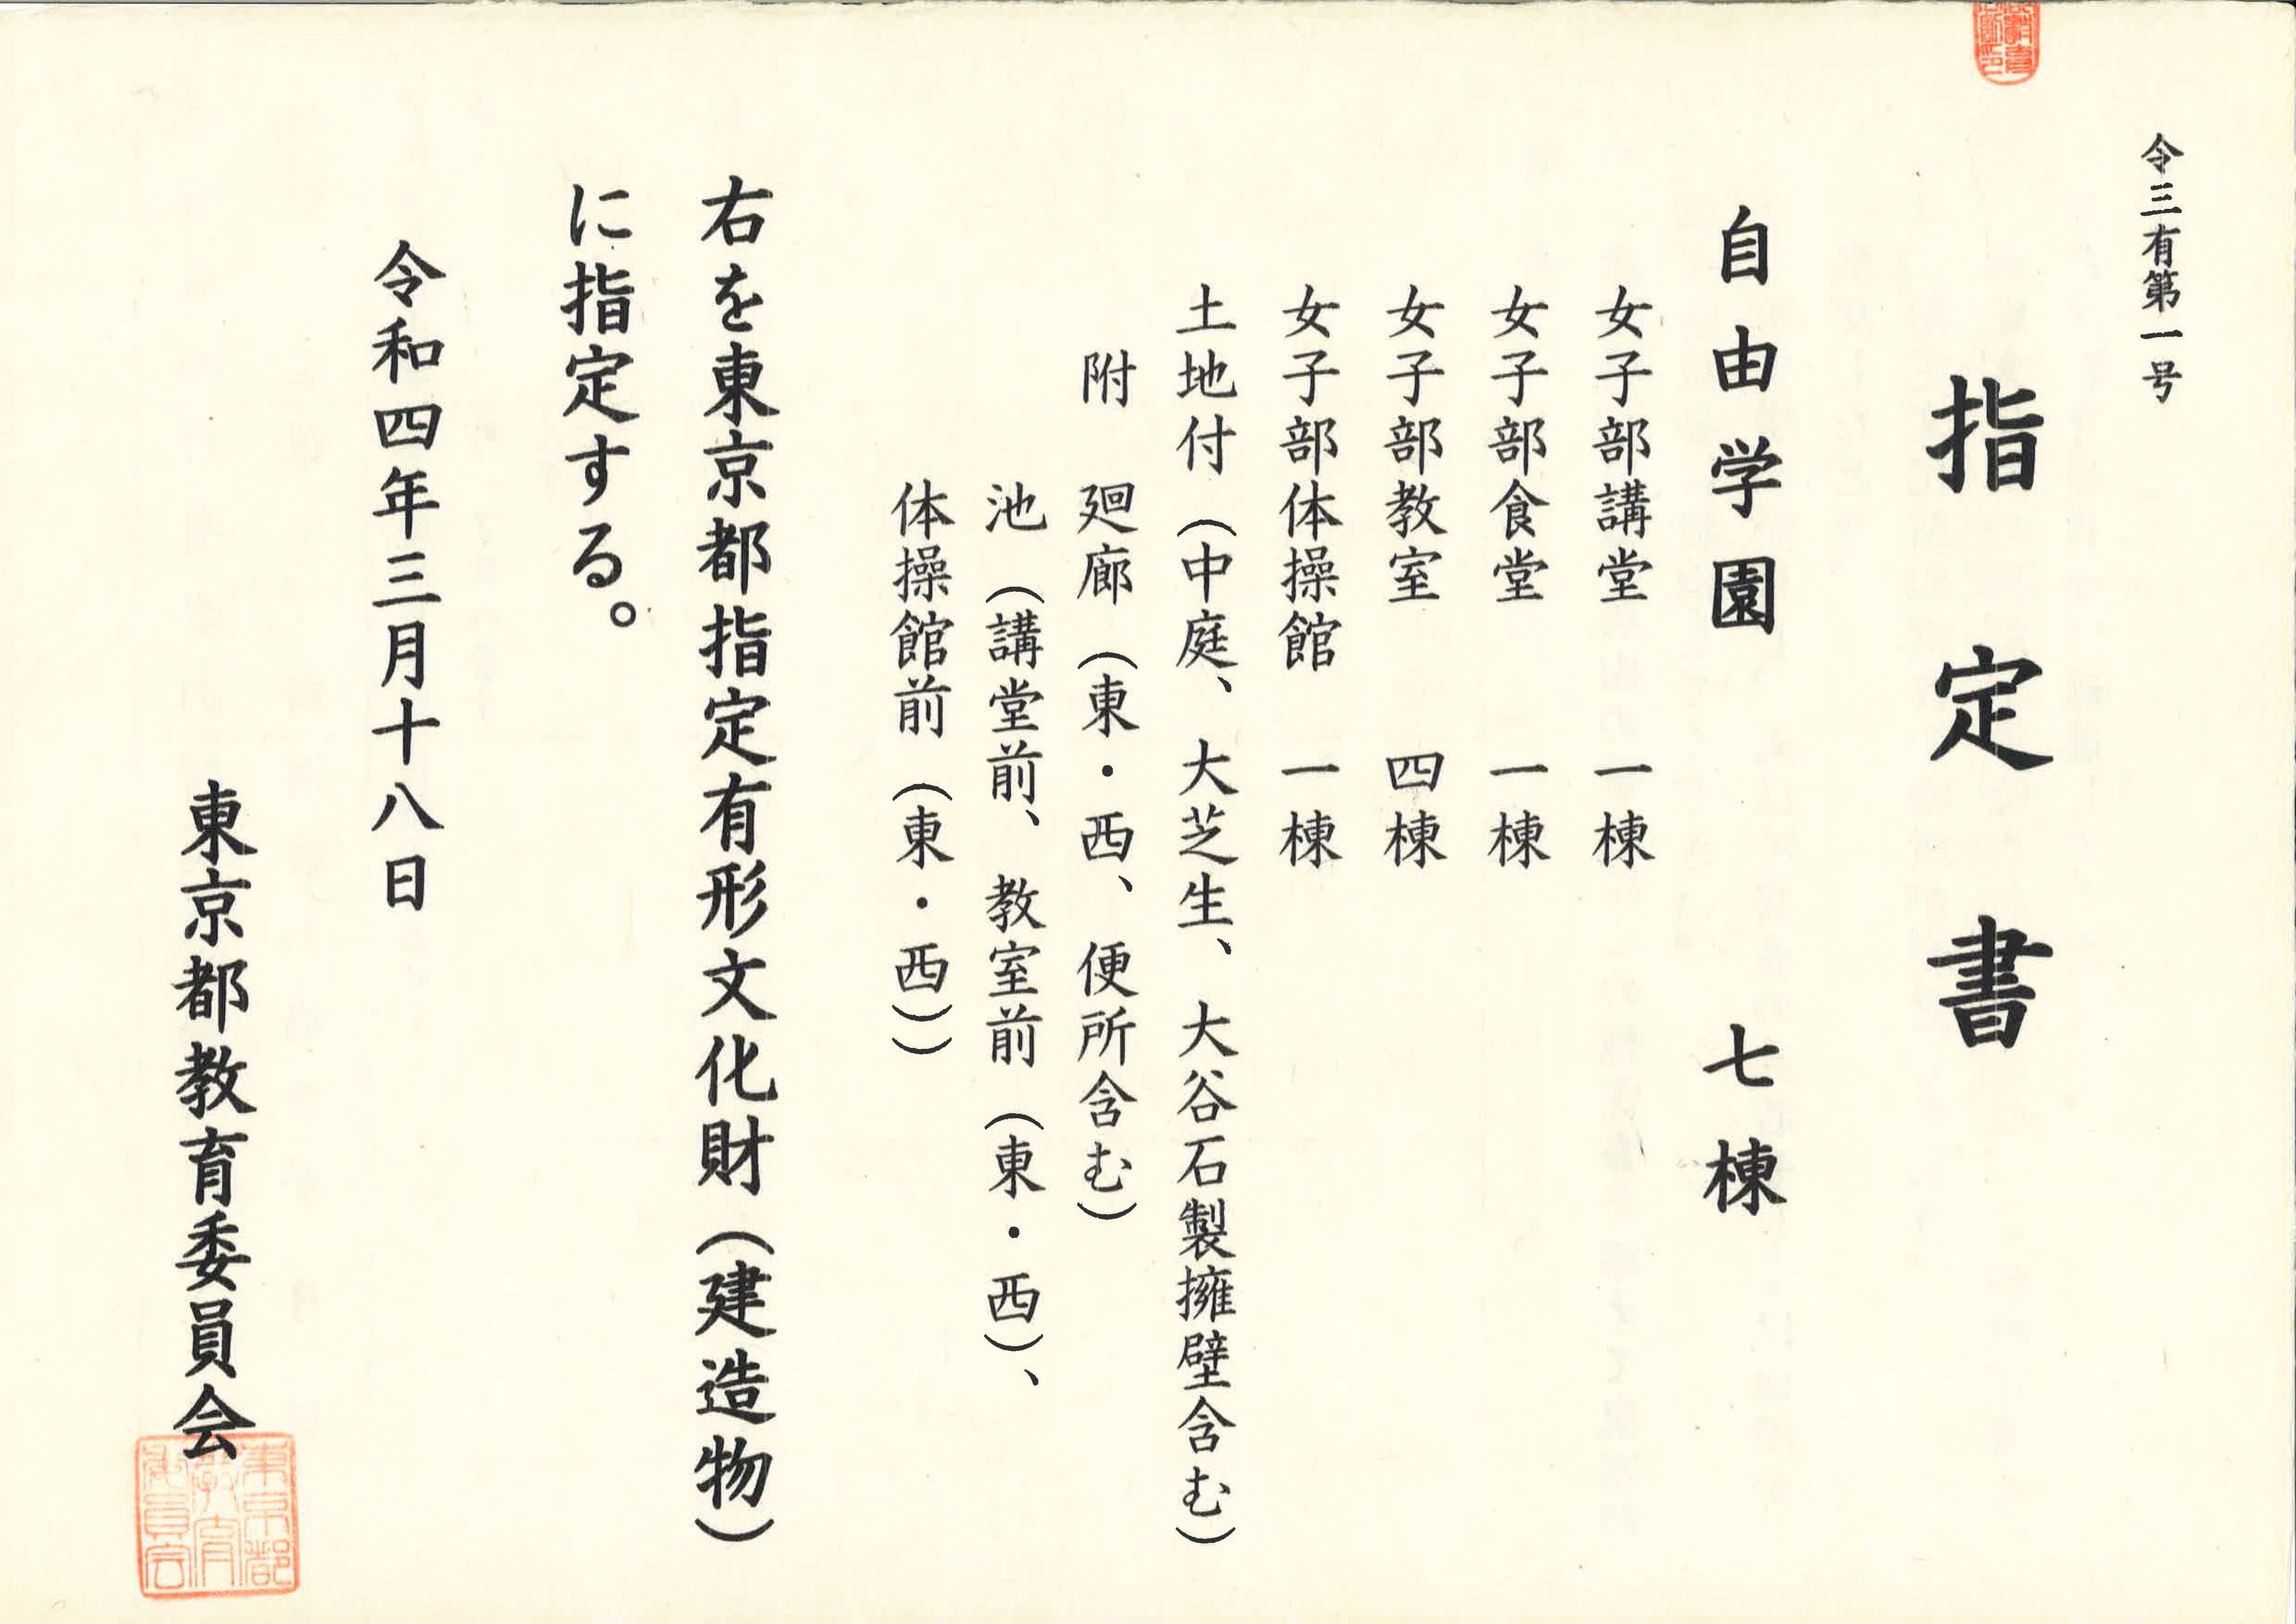 令三有第一号
指定書
自由学園　七棟
女子部講堂　一棟
女子部食堂　一棟
女子部教室　四棟
女子部体操館　一棟
土地付（中庭、大芝生、大谷石製擁壁含む）
附　廻廊（東・西、便所含む）
池（講堂前、教室前（東・西）、
体操館前（東・西））
右を東京都指定有形文化財（建造物）
に指定する。
令和四年三月十八日
東京都教育委員会
東京都
教育
委員会